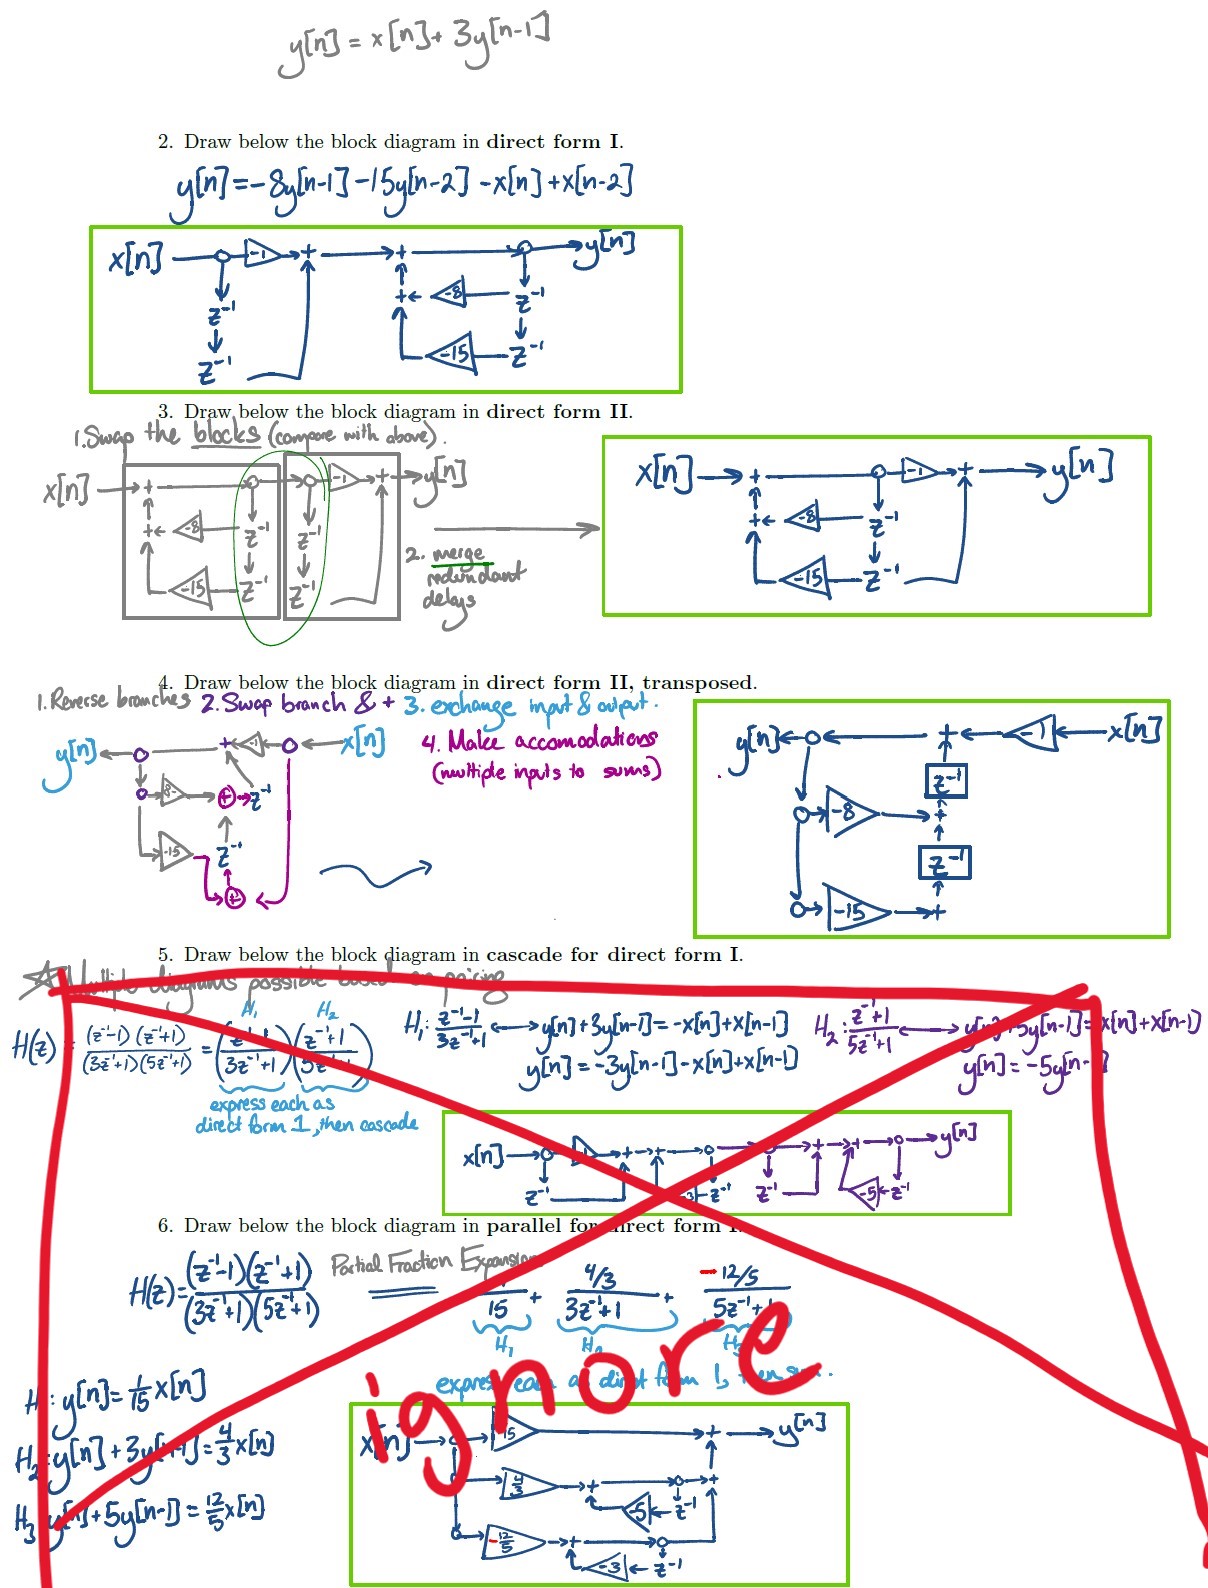 y[n] = x[n] + 3y[n-1]
2. Draw below the block diagram in direct form I.
y[n] = -8y[n-1] -15y[n-2] -x[n] +x[n-2]
x[n] -1 + + y[n]
z⁻¹ + -8 z⁻¹
z⁻¹ -15 z⁻¹
3. Draw below the block diagram in direct form II.
1. Swap the blocks (compare with above).
x[n] + -1 + y[n]
+ -8 z⁻¹ z⁻¹
-15 z⁻¹ z⁻¹
2. merge
redundant
delays
x[n] + -1 + y[n]
+ -8 z⁻¹
-15 z⁻¹
4. Draw below the block diagram in direct form II, transposed.
1. Reverse branches 2. Swap branch & + 3. exchange input & output.
4. Make accomodations
(multiple inputs to sums)
y[n] + -1 x[n]
8- + z⁻¹
-15 z⁻¹
+
y[n] + -1 x[n]
z⁻¹
-8 +
z⁻¹
-15 +
5. Draw below the block diagram in cascade for direct form I.
Multiple diagrams possible based on pairing
H(z) = (z⁻¹-1)(z⁻¹+1) / (3z⁻¹+1)(5z⁻¹+1) = (z⁻¹-1 / 3z⁻¹+1) (z⁻¹+1 / 5z⁻¹+1)
H₁ H₂
express each as
direct form 1, then cascade
H₁: z⁻¹-1 / 3z⁻¹+1 y[n]+3y[n-1]=-x[n]+x[n-1]
y[n]=-3y[n-1]-x[n]+x[n-1]
H₂: z⁻¹+1 / 5z⁻¹+1 y[n]+5y[n-1]=x[n]+x[n-1]
y[n]=-5y[n-
x[n] + + + + y[n]
z⁻¹ -3 z⁻¹ z⁻¹ -5 z⁻¹
6. Draw below the block diagram in parallel for direct form I.
H(z)= (z⁻¹-1)(z⁻¹+1) / (3z⁻¹+1)(5z⁻¹+1) Partial Fraction Expansion
1/15 + 4/3 / 3z⁻¹+1 + -12/5 / 5z⁻¹+1
H₁ H₂ H₃
express each as direct form 1, then sum.
H₁: y[n]= 1/15 x[n]
H₂: y[n]+3y[n-1]= 4/3 x[n]
H₃: y[n]+5y[n-1]= 12/5 x[n]
ignore
x[n] 15 + y[n]
4/3 + +
-5 z⁻¹
-12/5 +
-3 z⁻¹